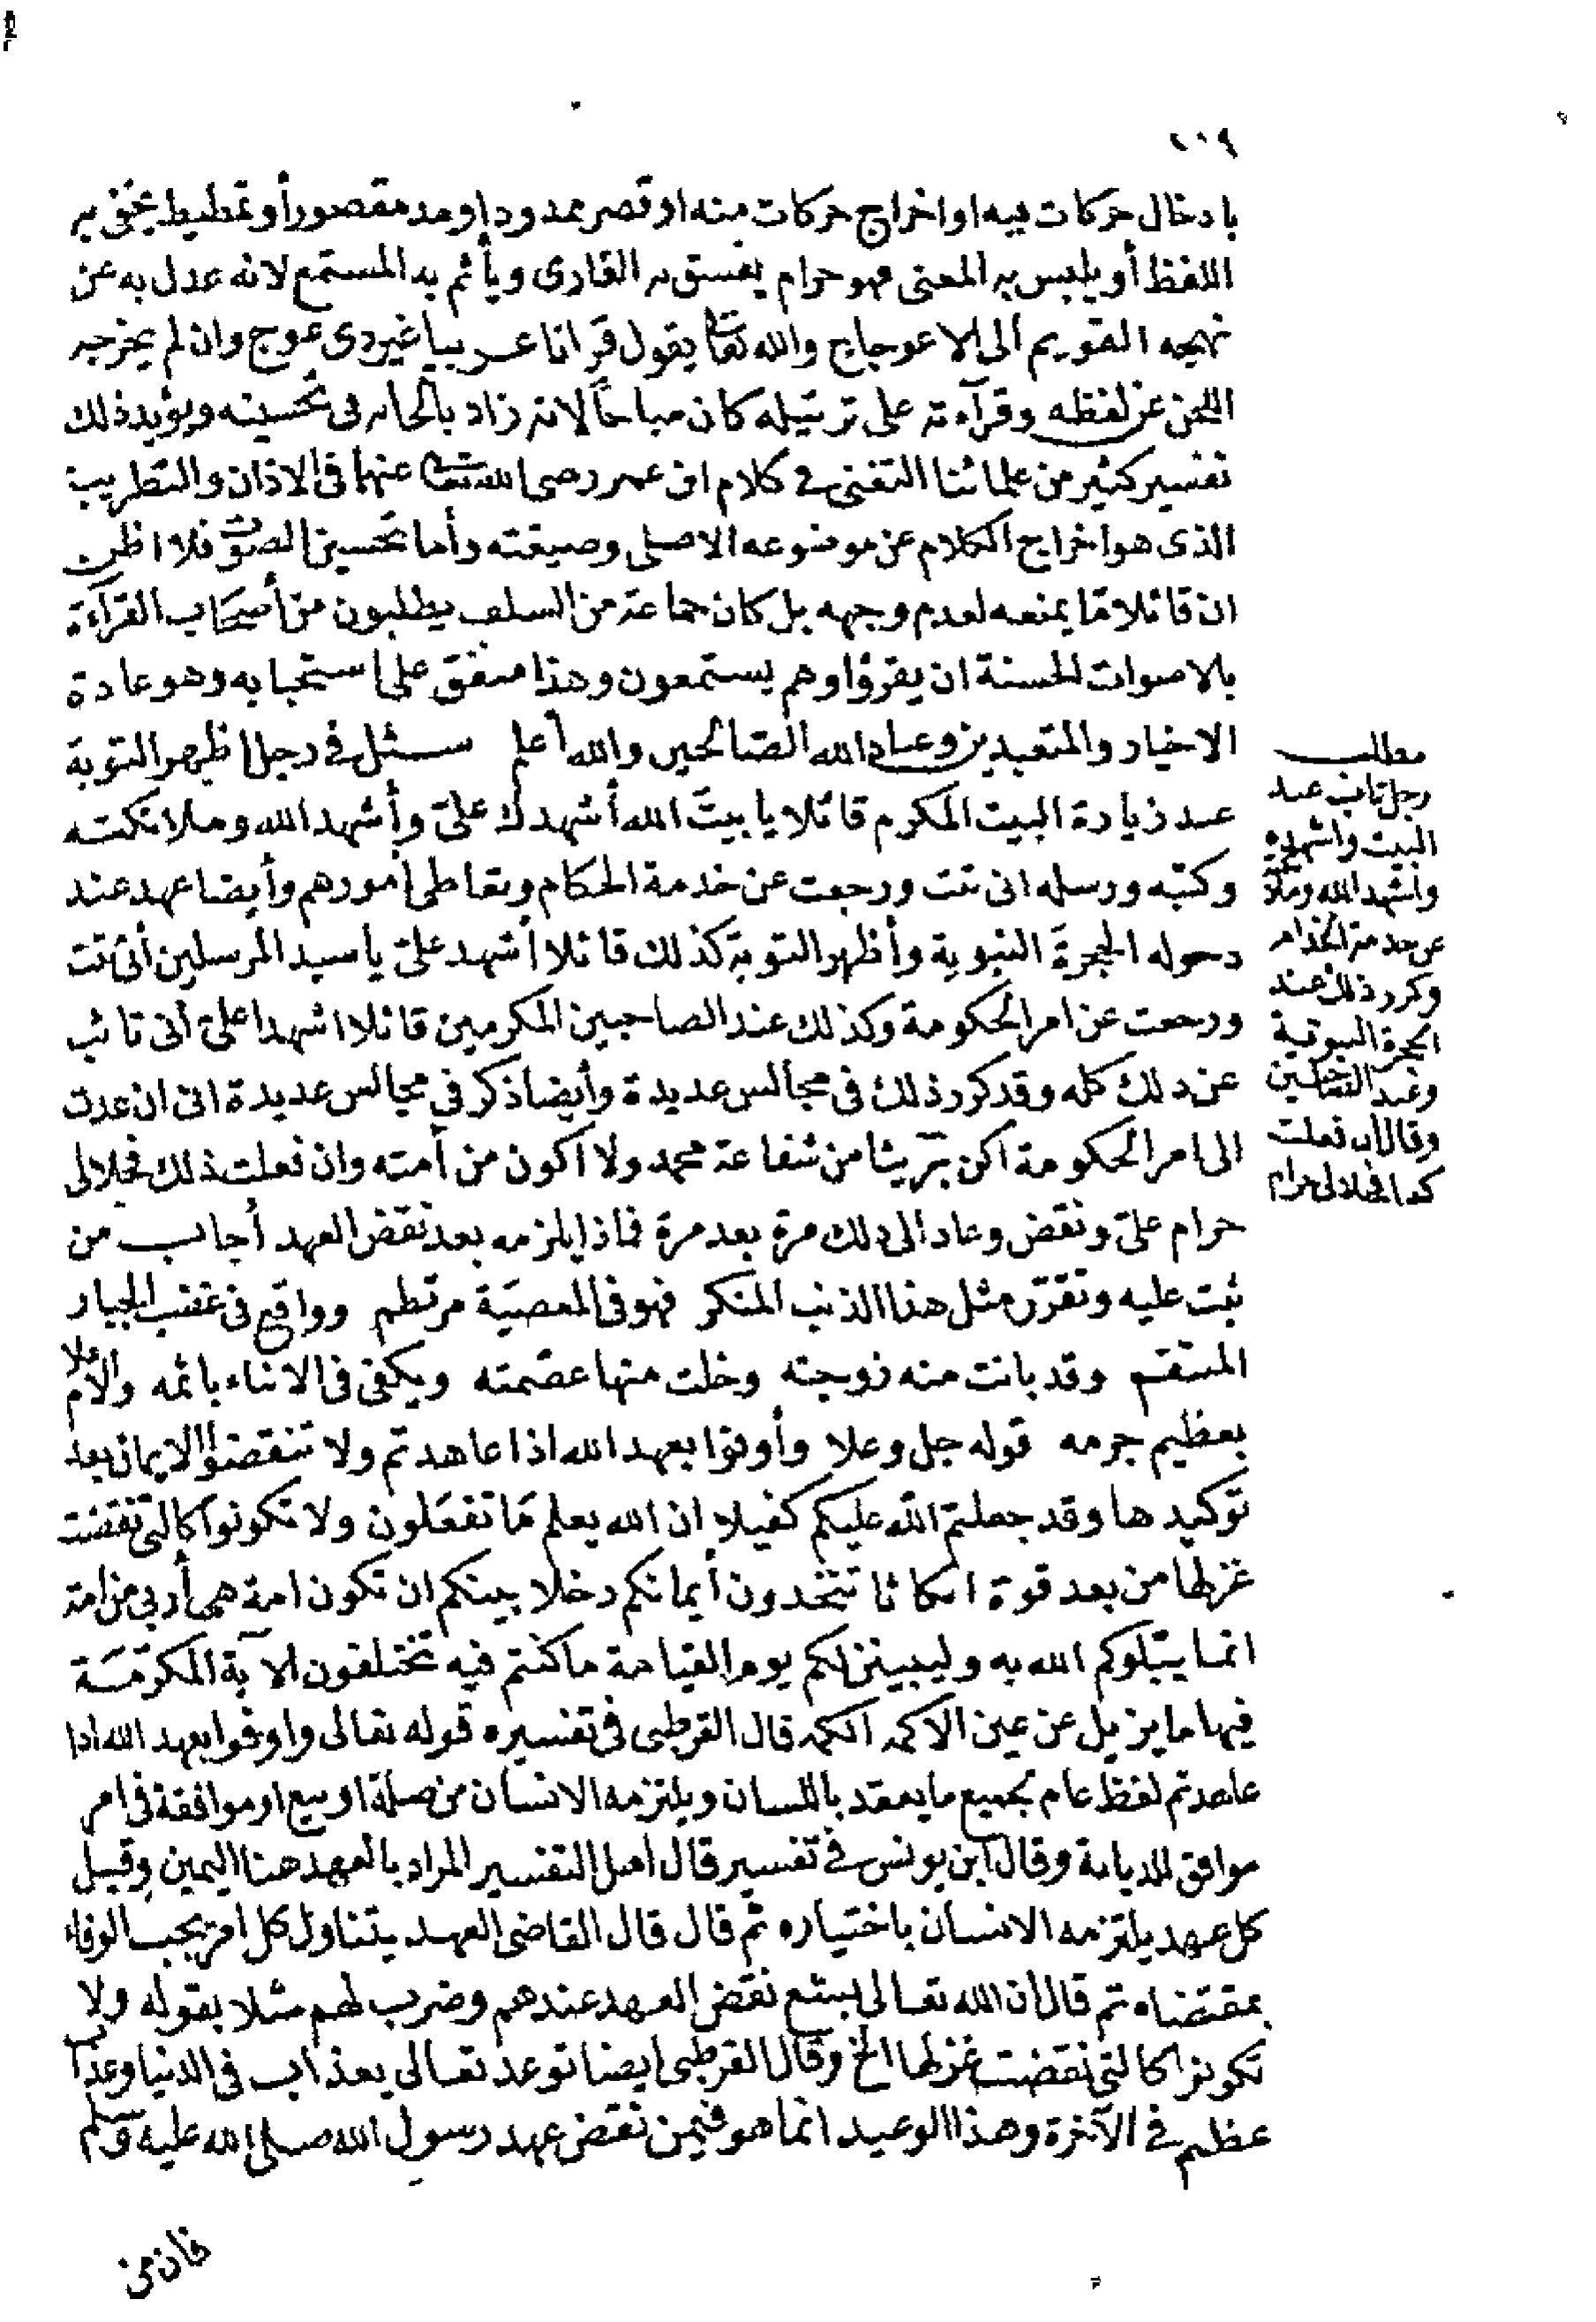 ٢٠٩
بادخال حركات فيه او اخراج حركات منه او قصر ممدود او مد مقصور أو تمطيط يخفى به
اللفظ أو يلبس به المعنى فهو حرام يفسق به القارى ويأثم به المستمع لانه عدل به عن
نهجه القويم الى الاعوجاج والله تعالى يقول قرانا عربيا غير ذى عوج وان لم يخرجه
اللحن عن لفظه وقرآءته على ترتيله كان مباحا لانه زاد بالحانه فى تحسينه ويؤيد ذلك
تفسير كثير من علمائنا التغنى فى كلام ابن عمر رضى الله تعالى عنهما فى الاذان والتطريب
الذى هو اخراج الكلام عن موضوعه الاصلى وصيغته وأما تحسين الصوت فلا اظن
ان قائلا ما يمنعه لعدم وجهه بل كان جماعة من السلف يطلبون من أصحاب القرآءة
بالاصوات الحسنة ان يقرؤا وهم يستمعون وهذا متفق على استحبابه وهو عادة
الاخيار والمتعبدين وعباد الله الصالحين والله أعلم سئل فى رجل اظهر التوبة
عند زيارة البيت المكرم قائلا يا بيت الله أشهدك علىّ وأشهد الله وملائكته
وكتبه ورسله انى تبت ورجعت عن خدمة الحكام وتعاطى أمورهم وأيضا عهد عند
دخوله الحجرة النبوية وأظهر التوبة كذلك قائلا أشهد علىّ يا سيد المرسلين أنى تبت
ورجعت عن امر الحكومة وكذلك عند الصاحبين المكرمين قائلا اشهدا علىّ أنى تائب
عن ذلك كله وقد كرر ذلك فى مجالس عديدة وأيضا ذكر في مجالس عديدة انى ان عدت
الى امر الحكومة اكن بريئا من شفاعة محمد ولا اكون من أمته وان فعلت ذلك فحلالى
حرام علىّ ونقض وعاد الى ذلك مرة بعد مرة فماذا يلزمه بعد نقض العهد أجاب من
ثبت عليه وتقرّر مثل هذا الذنب المنكر فهو فى المعصيّة مرتطم وواقع فى غضب الجبار
المنتقم وقد بانت منه زوجته وخلت منها عصمته ويكفى فى الانباء باثمه والاعلام
بعظيم جرمه قوله جل وعلا وأوفوا بعهد الله اذا عاهدتم ولا تنقضوا الايمان بعد
توكيدها وقد جعلتم الله عليكم كفيلا ان الله يعلم ما تفعلون ولا تكونوا كالتى نقضت
غزلها من بعد قوة انكاثا تتخذون أيمانكم دخلا بينكم ان تكون امة هى أربى من امة
انما يبلوكم الله به وليبينن لكم يوم القيامة ما كنتم فيه تختلفون الآية المكرّمَة
فيها ما يزيل عن عين الاكمه الكمه قال القرطبى فى تفسيره قوله تعالى واوفوا بعهد الله اذا
عاهدتم لفظ عام لجميع ما يعقد باللسان ويلتزمه الانسان من صلة او بيع او موافقة فى امر
موافق للديانة وقال ابن يونس فى تفسير قال اهل التفسير المراد بالعهد هنا اليمين وقيل
كل عهد يلتزمه الانسان باختياره ثم قال قال القاضى العهد يتناول كل امر يجب الوفاء
بمقتضاه ثم قال ان الله تعالى بشع نقض العهد عندهم وضرب لهم مثلا بقوله ولا
تكونوا كالتى نقضت غزلها الخ وقال القرطبى ايضا توعد تعالى بعذاب فى الدنيا وعذاب
عظيم فى الآخرة وهذا الوعيد انما هو فيمن نقض عهد رسول الله صلى الله عليه وسلم
فان من
مطلب
رجل تاب عند
البيت واشهده
واشهد الله وملا
عن خدمة الحكام
وكرر ذلك عند
الحجرة النبوية
وعند
وقال ان فعلت
كذا فحلالى حرام